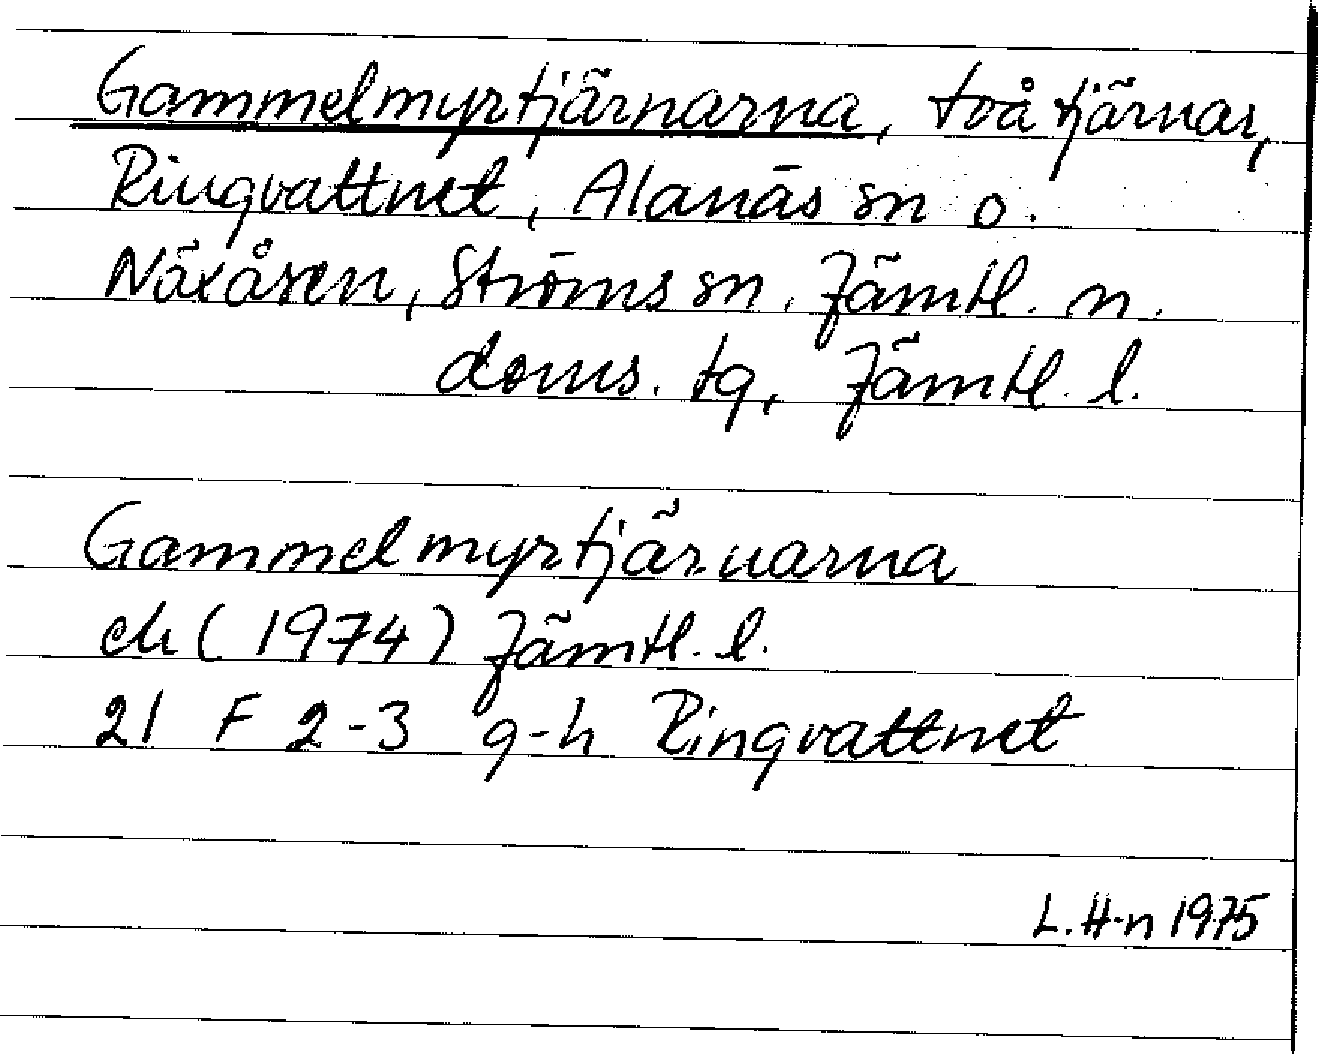 Gammelmyrtjärnarna, två tjärnar,
Ringvattnet, Alanäs sn o.
Näxåsen, Ströms sn, Jämtl. n.
doms. tg, Jämtl. l.
Gammelmyrtjärnarna
ek (1974) Jämtl. l.
21 F 2-3 g-h Ringvattnet
L. H-n 1975